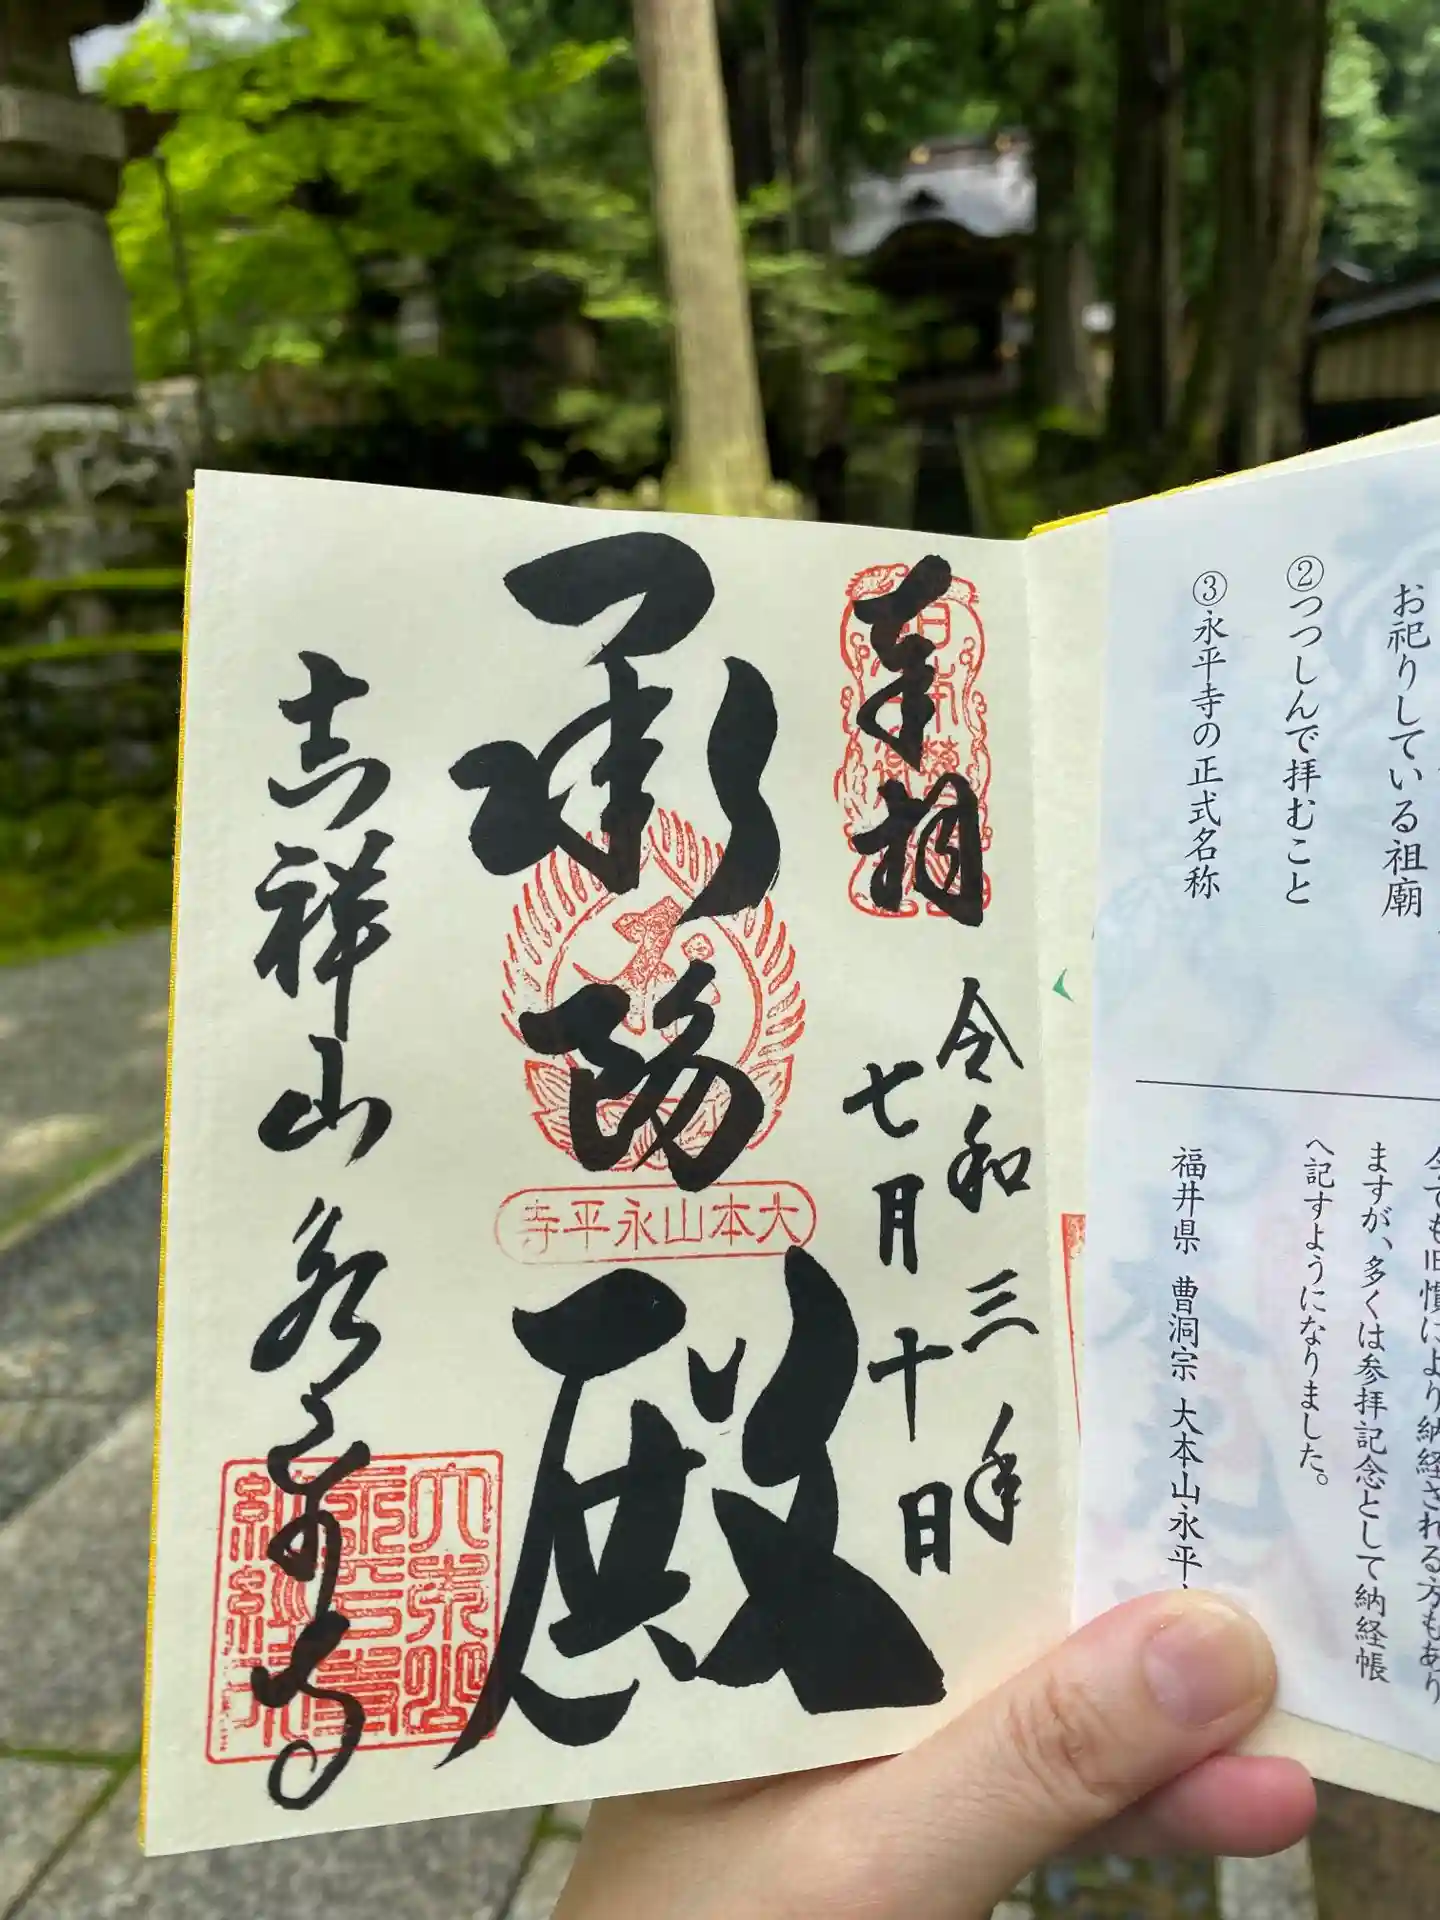 お祀りしている祖廟
②つつしんで拝むこと
③永平寺の正式名称
今でも旧慣により納経される方もあり
ますが、多くは参拝記念として納経帳
へ記すようになりました。
福井県 曹洞宗 大本山永平
奉拝
令和三年
七月十日
承陽殿
大本山永平寺
吉祥山永平寺
大本山
永平寺
納経印